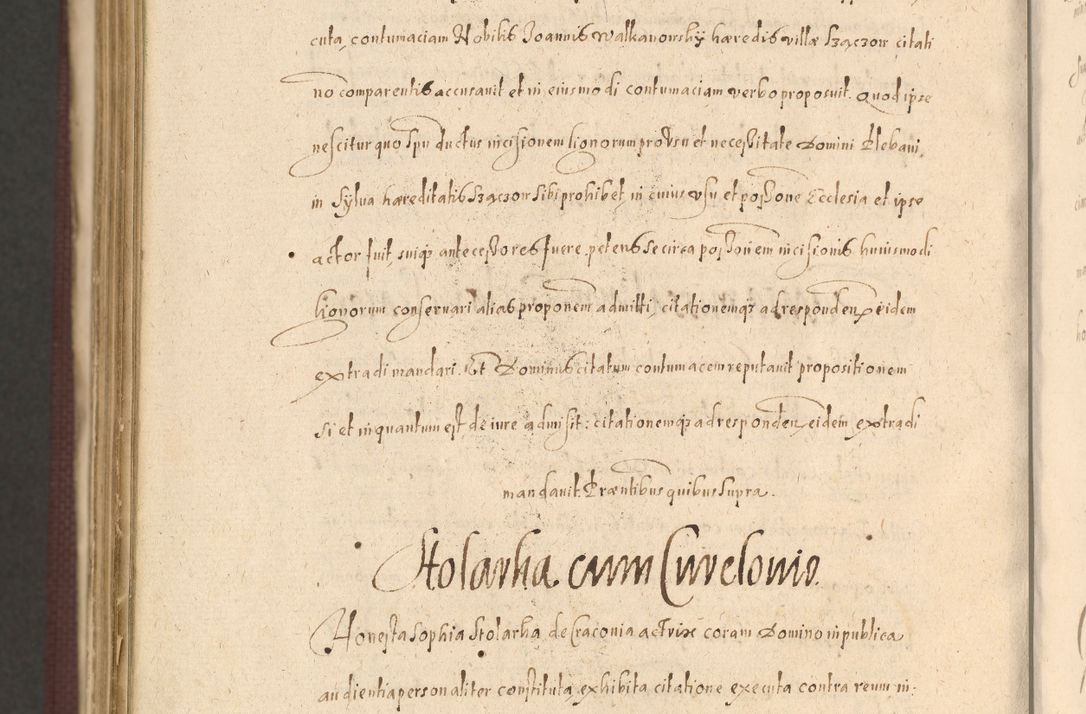 cuta, contumaciam Nobilis Joannis Walkanowsky hæredis villæ Szączow citati
no comparentis accusavit et in eiusmodi contumaciam verbo proposuit. Quod ipse
nescitur quo spu ductus incisionem lignorum pro usu et necessitate Domini Plebani,
in sylva hæreditatis Szączow sibi prohibet, in cuius usu et possone Ecclesia et ipse
actor fuit, suiq; antecessores fuere, petens se circa possonem incisionis huiusmodi
lignorum conservari alias proponem admitti, citationemq; ad responden eidem
extradi mandari. Et Dominus citatum contumacem reputavit propositionem
si et inquantum est de iure admisit: citationemq; ad responden, eidem extradi
mandavit. Præntibus quibus supra.
Stolarka cum Curelouio.
Honesta Sophia Stolarka de Craconia actrix coram Domino in publica
audientia personaliter constituta, exhibita citatione executa contra reum in: